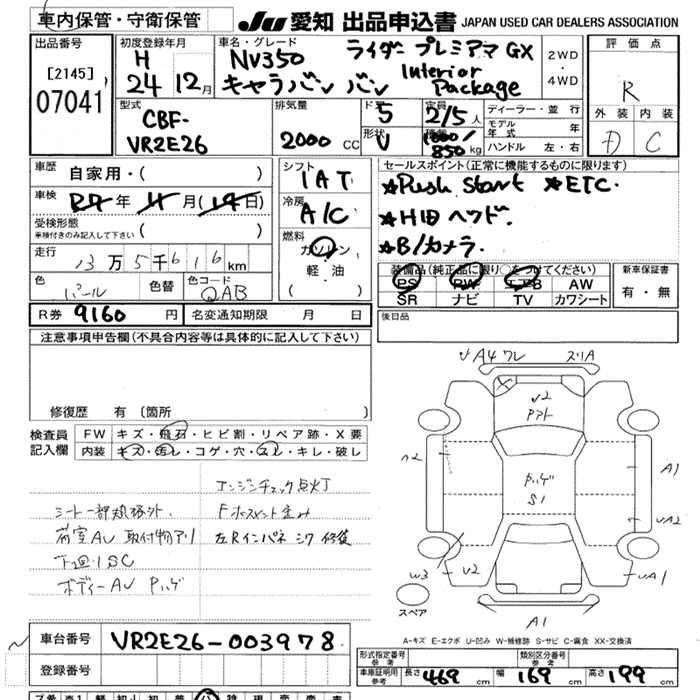 車内保管・守衛保管
JU 愛知 出品申込書 JAPAN USED CAR DEALERS ASSOCIATION
出品番号
[2145]
07041
初度登録年月
H
24年12月
車名・グレード
NV350 ライダー プレミアム GX
キャラバン バン Interior Package
2WD
・
4WD
評価点
R
外装 内装
D C
型式
CBF-
VR2E26
排気量
2000 CC
ドア
5
形状
V
定員
2/5人
積載
1000/
850kg
ディーラー・並行
モデル
年式 年
ハンドル 左・右
車歴
自家用・( )
車検
R7年11月(14日)
受検形態
車検付きのみ記入して下さい ( )
走行
13万5千616km
色
パール
色替
色コード
QAB
シフト
IAT
冷房
A/C
燃料
ガソリン
軽油
( )
セールスポイント(正常に機能するものに限ります)
☆Push Start ☆ETC.
☆HIDヘッド.
☆B/カメラ.
装備品(純正品に限り○をつけてください)
PS PW エアB AW
SR ナビ TV カワシート
新車保証書
有・無
R券 9160円
名変通知期限 月 日
後日品
注意事項申告欄(不具合内容等は具体的に記入して下さい)
修復歴 有 〔箇所 〕
検査員
記入欄
FW キズ・飛石・ヒビ割・リペア跡・X要
内装 キズ・汚レ・コゲ・穴・スレ・キレ・破レ
エンジンチェック点灯
シート一部
前室AV 取付物アリ
左Rインパネ シワ 修復
下廻りSC
ボディーAU
V A4 ワレ スリA
V2
A2
S1
A1
UA2
W3
V2
UA1
A1
スペア
A-キズ E-エクボ U-凹み W-補修跡 S-サビ C-腐食 XX-交換済
車台番号 VR2E26-003978
登録番号
形式指定番号
参考
類別区分番号
参考
車庫証明用
参考
長さ 469 cm 幅 169 cm 高さ 199 cm